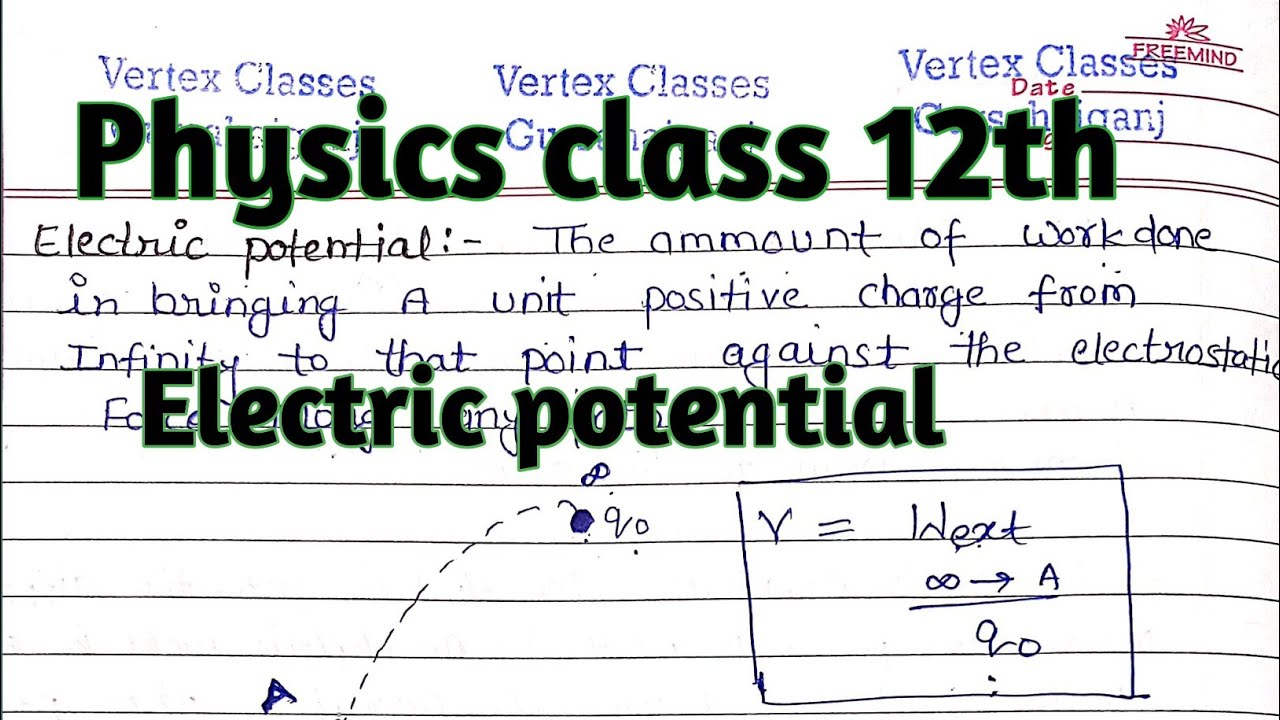 FREEMIND
Vertex Classes Vertex Classes Vertex Classes
Date
Physics class 12th
Electric potential:- The ammount of workdone
in bringing A unit positive charge from
Infinity to that point against the electrostatic
Electric potential
∞
q₀
V = Wext
∞ → A
q₀
A